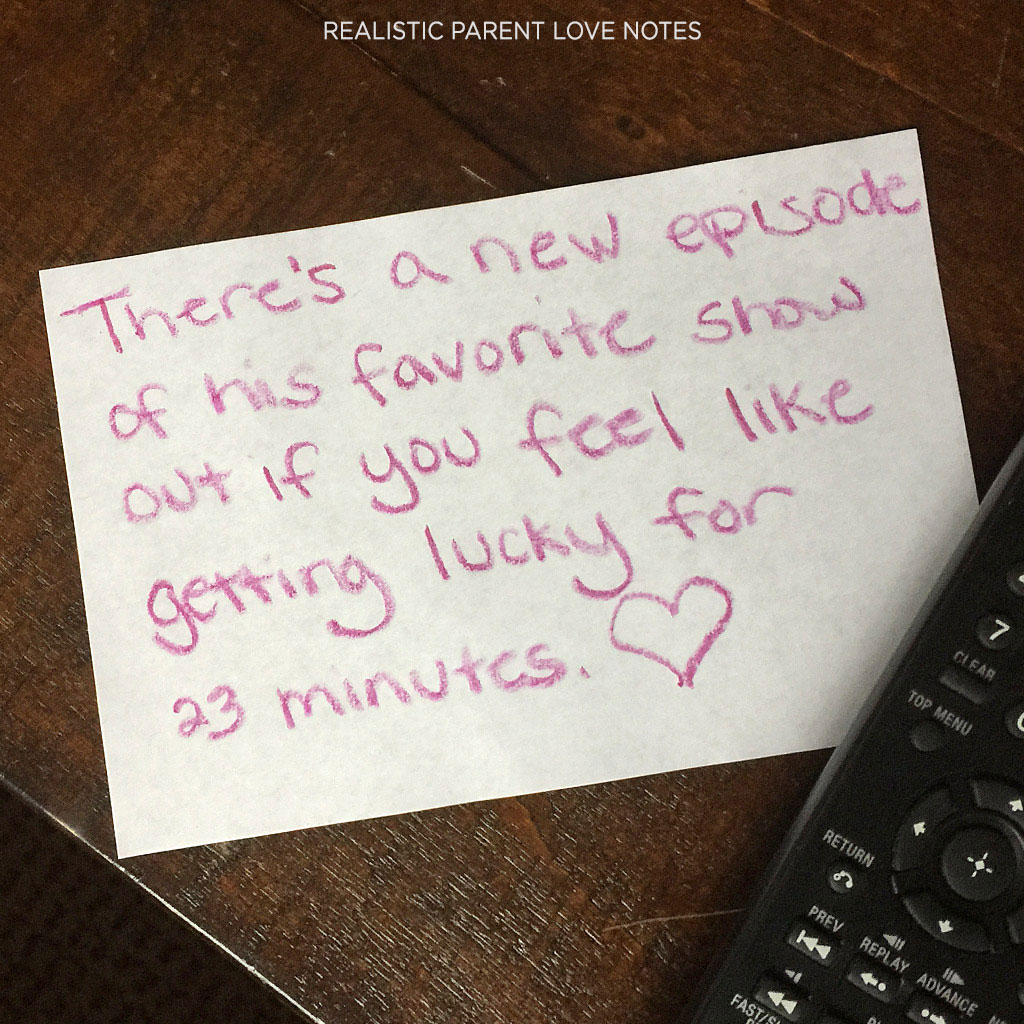 REALISTIC PARENT LOVE NOTES
There's a new episode
of his favorite show
out if you feel like
getting lucky for
23 minutes.
7
CLEAR
TOP MENU
RETURN
PREV
REPLAY
ADVANCE